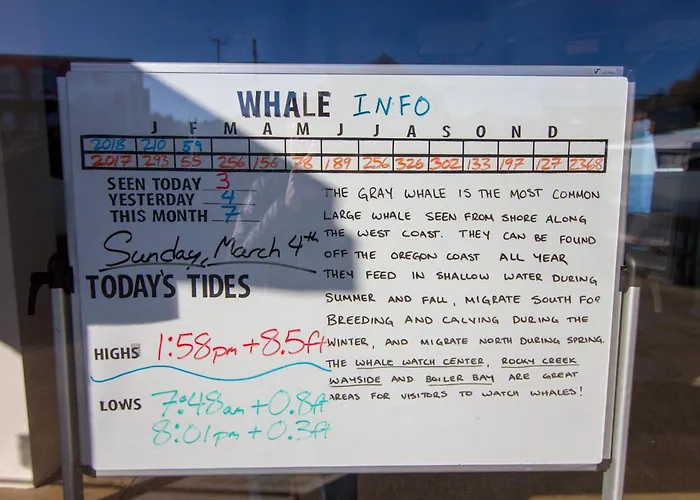 WHALE INFO
J F M A M J J A S O N D
2018 210 59
2017 293 55 256 156 78 189 256 326 302 133 197 127 2368
SEEN TODAY 3
YESTERDAY 4
THIS MONTH 7
Sunday, March 4th
TODAY'S TIDES
HIGHS 1:58pm +8.5ft
LOWS 7:48am +0.8ft
8:01pm +0.3ft
THE GRAY WHALE IS THE MOST COMMON
LARGE WHALE SEEN FROM SHORE ALONG
THE WEST COAST. THEY CAN BE FOUND
OFF THE OREGON COAST ALL YEAR
THEY FEED IN SHALLOW WATER DURING
SUMMER AND FALL, MIGRATE SOUTH FOR
BREEDING AND CALVING DURING THE
WINTER, AND MIGRATE NORTH DURING SPRING.
THE WHALE WATCH CENTER, ROCKY CREEK
WAYSIDE AND BOILER BAY ARE GREAT
AREAS FOR VISITORS TO WATCH WHALES!